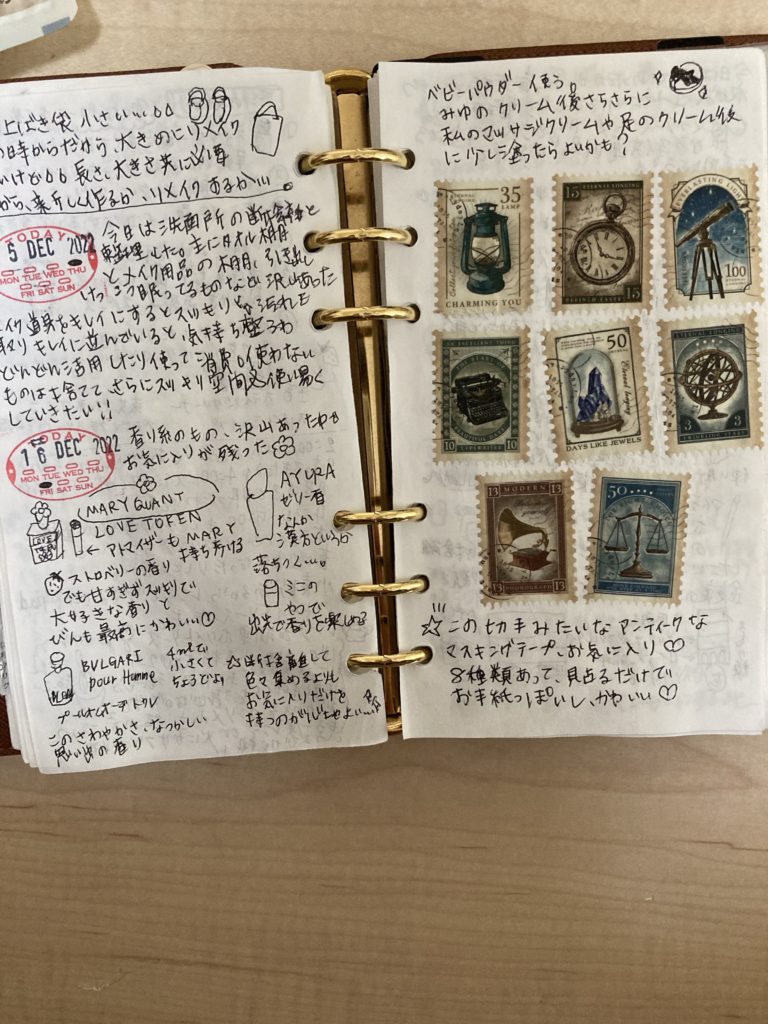 上ばき袋 小さい…
の時からだから、大きめにリメイク
いけど 長さ、大きさ共に必要
から、新しく作るか、リメイクするか…。
TODAY
5 DEC 2022
MON TUE WED THU
FRI SAT SUN
今日は洗面所の断捨離と
整理した。主にタオル棚
とメイク用品の棚、引き出し
眠ってるものなどが沢山あった
イク道具をキレイにするとスッキリと
キレイに並んでいると、気持ち
どんどん活用したり使って 使わない
ものは捨てて、さらにスッキリ空間&使い易く
していきたい!!
TODAY
16 DEC 2022
MON TUE WED THU
FRI SAT SUN
香り系のもの、沢山あったわ
お気に入りが残った
MARY QUANT
LOVE TOKEN
LOVE
← アトマイザーも MARY
持ち歩ける
ストロベリーの香り
でも甘すぎずスッキリで
大好きな香りと
びんも最高にかわいい♡
AYURA
ゼリー香
なんか
漢方というか
落ちつく…。
ミニの
やつで
出先で香りを楽しめる
BVLGARI
pour Homme
4mlで
小さくて
ちょうどよい
プールオムオードトワレ
このさわやかさ、なつかしい
思い出の香り
☆断捨離して
色々集めるよりも
お気に入りだけを
持つのが心地よい…
ベビーパウダー使う。
みゆのクリーム後さらさらに
私のマッサージクリームや足のクリーム後
に少し塗ったらよいかも?
35
LAMP
CHARMING YOU
15
ETERNAL LONGING
15
EVERLASTING LIGHT
100
AN EXCELLENT THING
10
10
50
Eternal longing
DAYS LIKE JEWELS
3
3
TWINKLING STARS
13
MODERN
13
13
PHONOGRAPH
13
50
☆この切手みたいなアンティークな
マスキングテープ、お気に入り♡
8種類あって、貼るだけで
お手紙っぽいし、かわいい♡